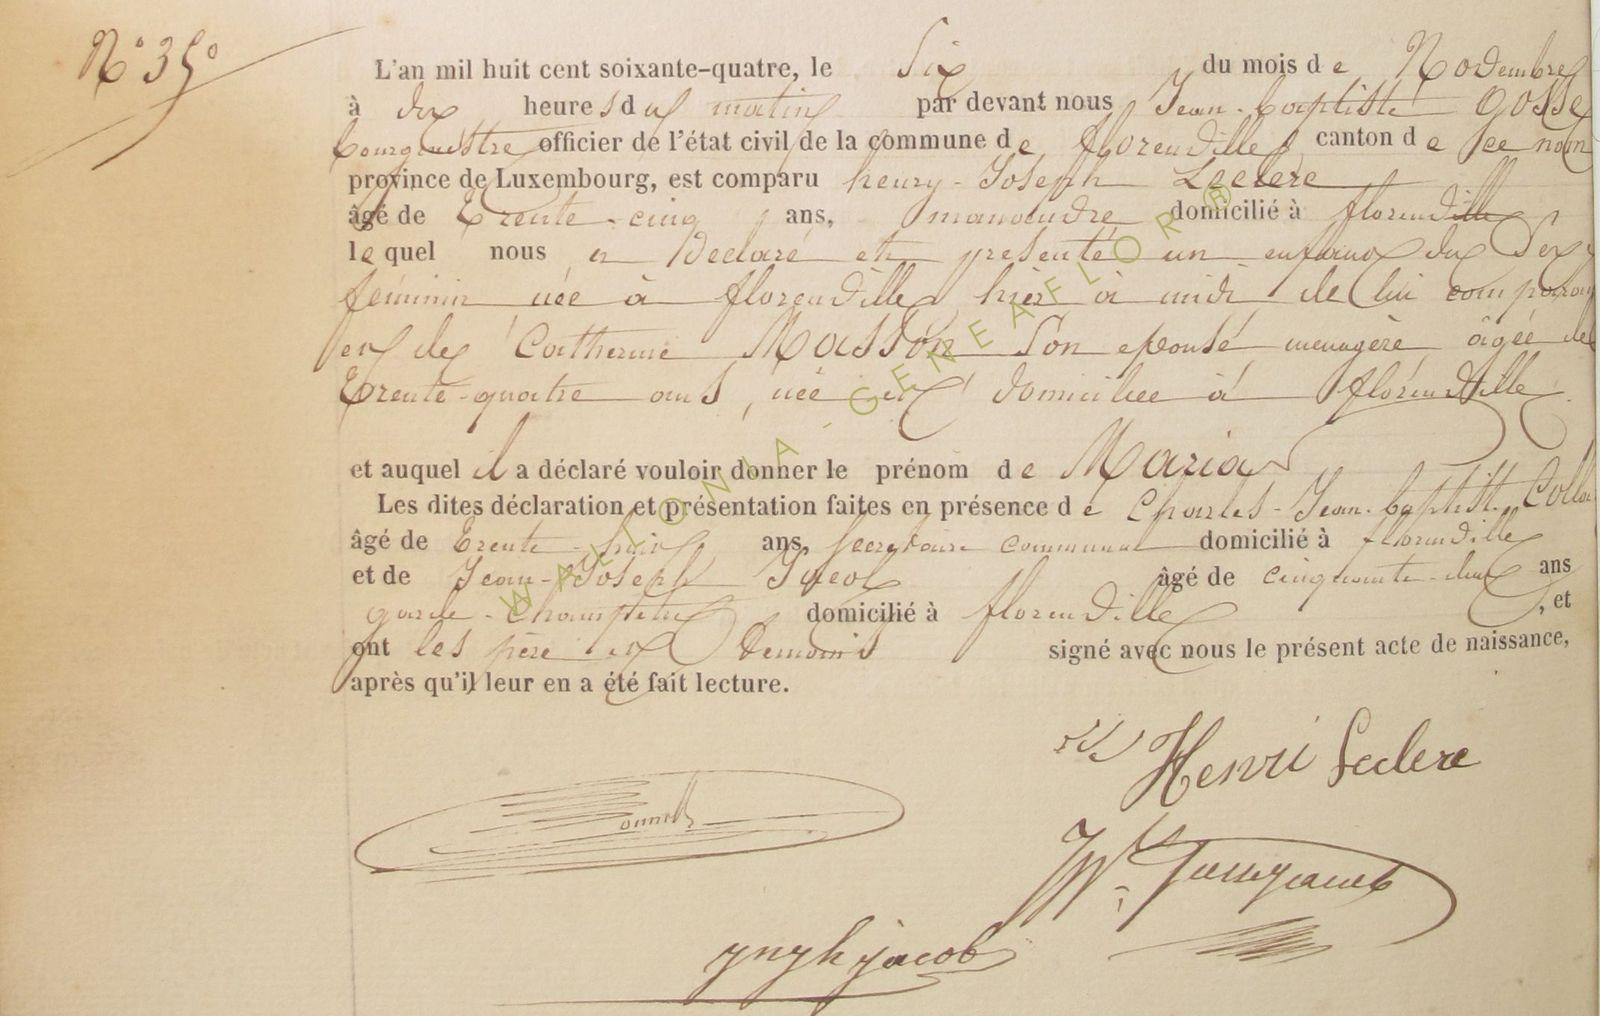 N° 35
L'an mil huit cent soixante-quatre, le Six du mois de Novembre
à dix heures du matin par devant nous Jean-baptiste Gosse
bourgmestre officier de l'état civil de la commune de florenville canton de ce nom
province de Luxembourg, est comparu henry-Joseph Leclere
âgé de Trente-cinq ans, manoeuvre domicilié à florenville
lequel nous a declaré et presenté un enfant du Sexe
feminin née à florenville hier à midi de lui comparant
et de Catherine Masson Son epouse menagère âgée de
Trente-quatre ans, née et domiciliee à florenville
et auquel il a déclaré vouloir donner le prénom de Maria
Les dites déclaration et présentation faites en présence de Charles-Jean-baptiste
âgé de Trente-huit ans secretaire communal domicilié à florenville
et de Jean-Joseph âgé de cinquante-deux ans
garde-Champetre domicilié à florenville, et
ont les père et temoins signé avec nous le présent acte de naissance,
après qu'il leur en a été fait lecture.
Henri Leclere
jacob
WALLONIA-GENEAFLOR®